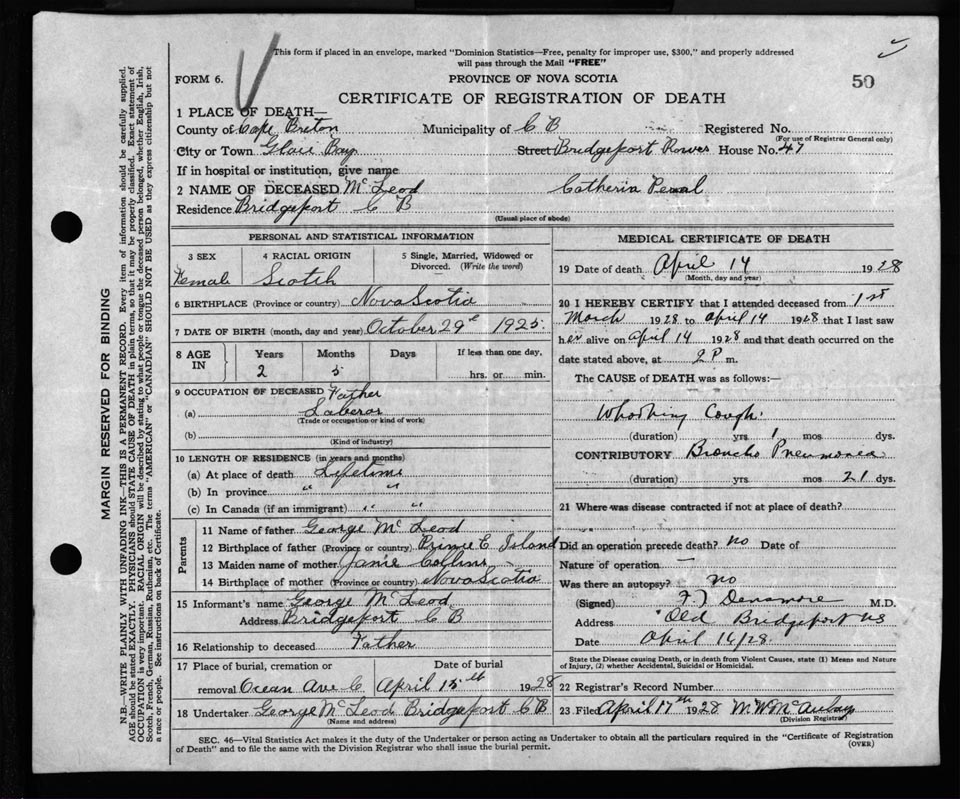 This form if placed in an envelope, marked "Dominion Statistics—Free, penalty for improper use, $300," and properly addressed
will pass through the Mail "FREE"
50
FORM 6.
PROVINCE OF NOVA SCOTIA
CERTIFICATE OF REGISTRATION OF DEATH
1 PLACE OF DEATH—
County of Cape Breton Municipality of C B Registered No.
(For use of Registrar General only)
City or Town Glace Bay Street Bridgeport Rows House No. 47
If in hospital or institution, give name
2 NAME OF DECEASED McLeod Catherin
Residence Bridgeport C B
(Usual place of abode)
PERSONAL AND STATISTICAL INFORMATION
3 SEX 4 RACIAL ORIGIN 5 Single, Married, Widowed or Divorced. (Write the word)
Female Scotch
6 BIRTHPLACE (Province or country) Nova Scotia
7 DATE OF BIRTH (month, day and year) October 29th 1925.
8 AGE IN Years Months Days If less than one day,
2 5 hrs. or min.
9 OCCUPATION OF DECEASED Father
(a) Laberor
(Trade or occupation or kind of work)
(b)
(Kind of industry)
10 LENGTH OF RESIDENCE (in years and months)
(a) At place of death Lifetime
(b) In province " "
(c) In Canada (if an immigrant) " "
Parents
11 Name of father George McLeod
12 Birthplace of father (Province or country) Prince E Island
13 Maiden name of mother Janie Collins
14 Birthplace of mother (Province or country) Nova Scotia
15 Informant's name George McLeod
Address Bridgeport C B
16 Relationship to deceased Father
17 Place of burial, cremation or Date of burial
removal Ocean Ave C April 15th 1928
18 Undertaker George McLeod Bridgeport C B
(Name and address)
MEDICAL CERTIFICATE OF DEATH
19 Date of death April 14 1928
(Month, day and year)
20 I HEREBY CERTIFY that I attended deceased from 1st
March 1928 to April 14 1928 that I last saw
her alive on April 14 1928 and that death occurred on the
date stated above, at 2 P m.
The CAUSE of DEATH was as follows:—
Whooping Cough.
(duration) yrs 1 mos dys.
CONTRIBUTORY Broncho Pneumonea
(duration) yrs. mos 21 dys.
21 Where was disease contracted if not at place of death?
Did an operation precede death? no Date of
Nature of operation —
Was there an autopsy? no
(Signed) Densmore M.D.
Address Old Bridgeport NS
Date April 14/28.
State the Disease causing Death, or in death from Violent Causes, state (1) Means and Nature
of Injury, (2) whether Accidental, Suicidal or Homicidal.
22 Registrar's Record Number
23 Filed April 17th 1928 M. W. McAulay
(Division Registrar)
SEC. 46—Vital Statistics Act makes it the duty of the Undertaker or person acting as Undertaker to obtain all the particulars required in the "Certificate of Registration
of Death" and to file the same with the Division Registrar who shall issue the burial permit. (OVER)
MARGIN RESERVED FOR BINDING
N.B.—WRITE PLAINLY, WITH UNFADING INK—THIS IS A PERMANENT RECORD. Every item of information should be carefully supplied.
AGE should be stated EXACTLY. PHYSICIANS should STATE CAUSE OF DEATH in plain terms, so that it may be properly classified. Exact statement of
OCCUPATION is very important. RACIAL ORIGIN will be described by stating to what people or tongue the deceased person belonged, whether English, Irish,
Scotch, French, German, Russian, Ruthenian, etc. The terms "AMERICAN" or "CANADIAN" SHOULD NOT BE USED as they express citizenship but not
a race or people. See instructions on back of Certificate.